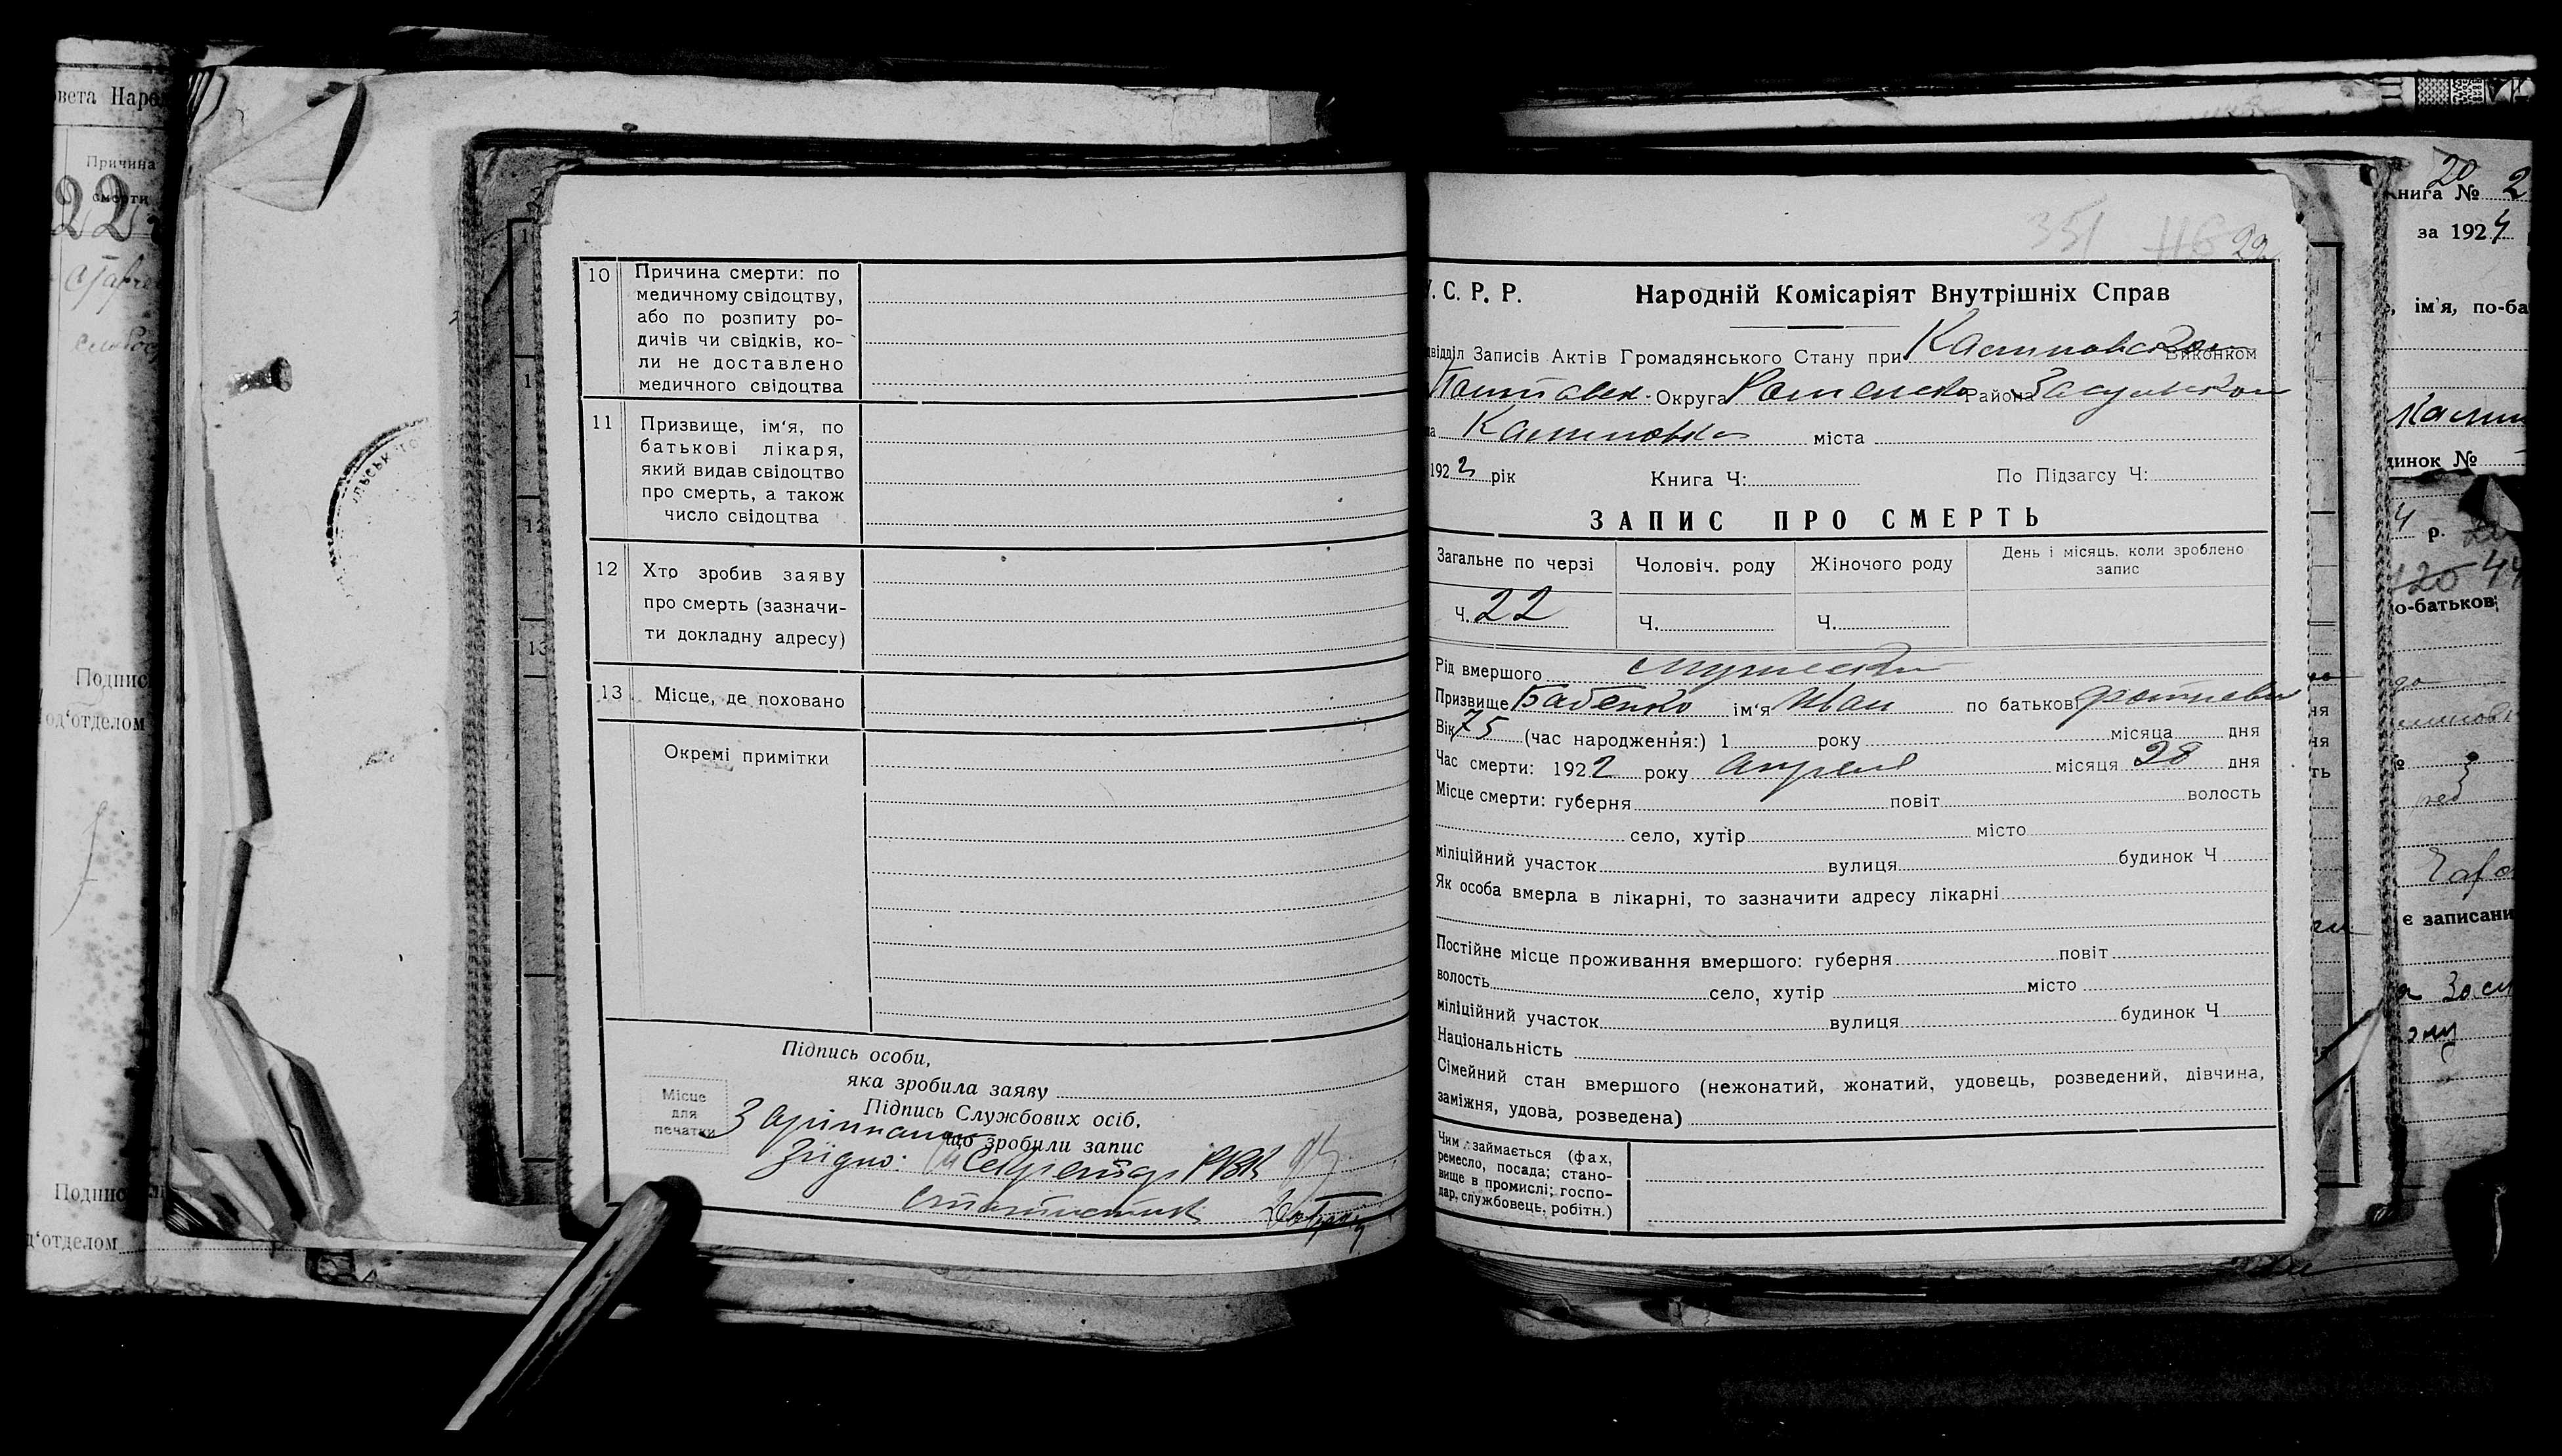 вета Народ
Причина
смерти
22
Подпис
од‘отделом
Подпис
д‘отделом
10 Причина смерти: по
медичному свідоцтву,
або по розпиту ро-
дичів чи свідків, ко-
ли не доставлено
медичного свідоцтва
11 Призвище, ім‘я, по
батькові лікаря,
який видав свідоцтво
про смерть, а також
число свідоцтва
12 Хто зробив заяву
про смерть (зазначи-
ти докладну адресу)
13 Місце, де поховано
Окремі примітки
Підпись особи,
яка зробила заяву
Місце
для
печатки
Підпись Службових осіб,
що зробили запис
Згідно: Секретар РВК
статистик
351 22
У. С. Р. Р. Народній Комісаріят Внутрішніх Справ
відділ Записів Актів Громадянського Стану при Калиновском Виконком
Полтавск. Округа Роменско Района Засульском
Калиновка міста
1922 рік Книга Ч: По Підзагсу Ч:
ЗАПИС ПРО СМЕРТЬ
Загальне по черзі Чоловіч. роду Жіночого роду День і місяць. коли зроблено
запис
Ч. 22 Ч. Ч.
Рід вмершого мужеский
Призвище Бабенко ім‘я Иван по батькові Фотиевич
Вік 75 (час народження:) 1 року місяца дня
Час смерти: 1922 року Апреля місяця 28 дня
Місце смерти: губерня повіт волость
село, хутір місто
міліційний участок вулиця будинок Ч
Як особа вмерла в лікарні, то зазначити адресу лікарні
Постійне місце проживання вмершого: губерня повіт
волость село, хутір місто
міліційний участок вулиця будинок Ч
Національність
Сімейний стан вмершого (нежонатий, жонатий, удовець, розведений, дівчина,
заміжня, удова, розведена)
Чим займається (фах,
ремесло, посада; стано-
вище в промислі; госпо-
дар, службовець, робітн.)
нига № 2
за 1924
ім‘я, по-ба
динок №
4 р.
о-батьков;
є записани